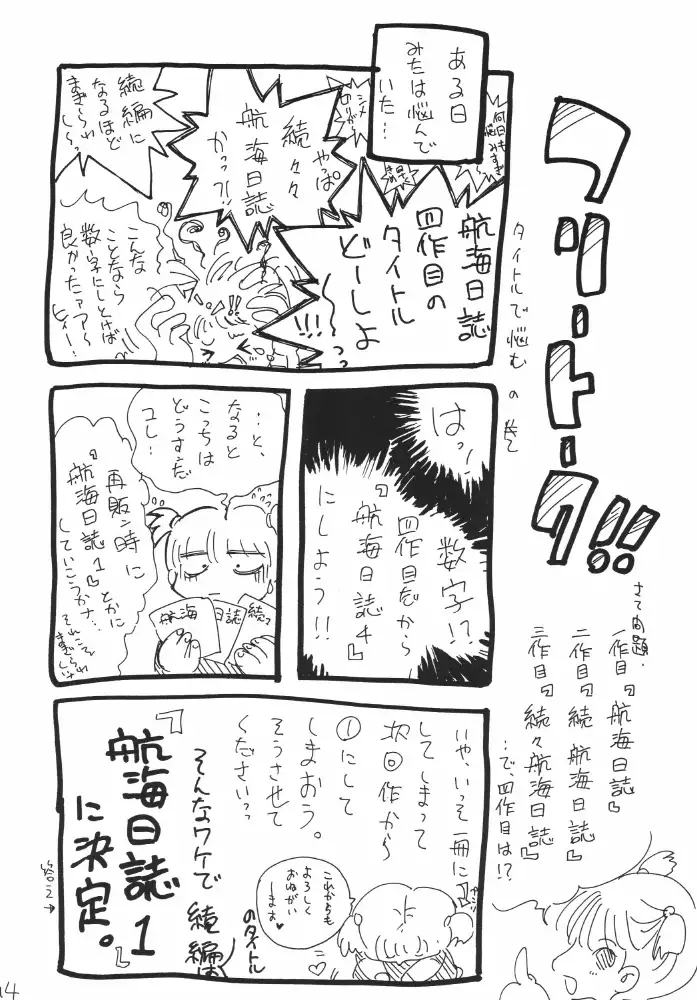 フリートーク!!
タイトルで悩むの巻
さて問題.
一作目『航海日誌』
二作目『続 航海日誌』
三作目『続々航海日誌』
…で、四作目は!?
ある日
みたは悩んで
いた…
航海日誌
四作目の
タイトル
どーしよ
〜〜っっ
!!!
何日も
悩みすぎ
シメ
のりが
やっぱ
続々々
航海日誌
かっ?!
続編に
なるほど
まぎらわ
し〜っ
こんな
ことなら
数字にしとけば
良かったァァ〜
ヒィー!
はっ!
数字!?
四作目だから
『航海日誌4』
にしよう!!
…と、
なると
こっちは
どうすんだ
ユレ…
再販ン時に
『航海日誌1』とかに
していこうかナ…
それこそ
まぎらわしいナ
いや、いっそ一冊に
してしまって
次回作から
①にして
しまおう。
そうさせて
くださいっっ
これからも
よろしく
おねがい
しまーす♥
そんなワケで 続編は
のタイトル
『航海日誌1』
に決定。
答え→
14